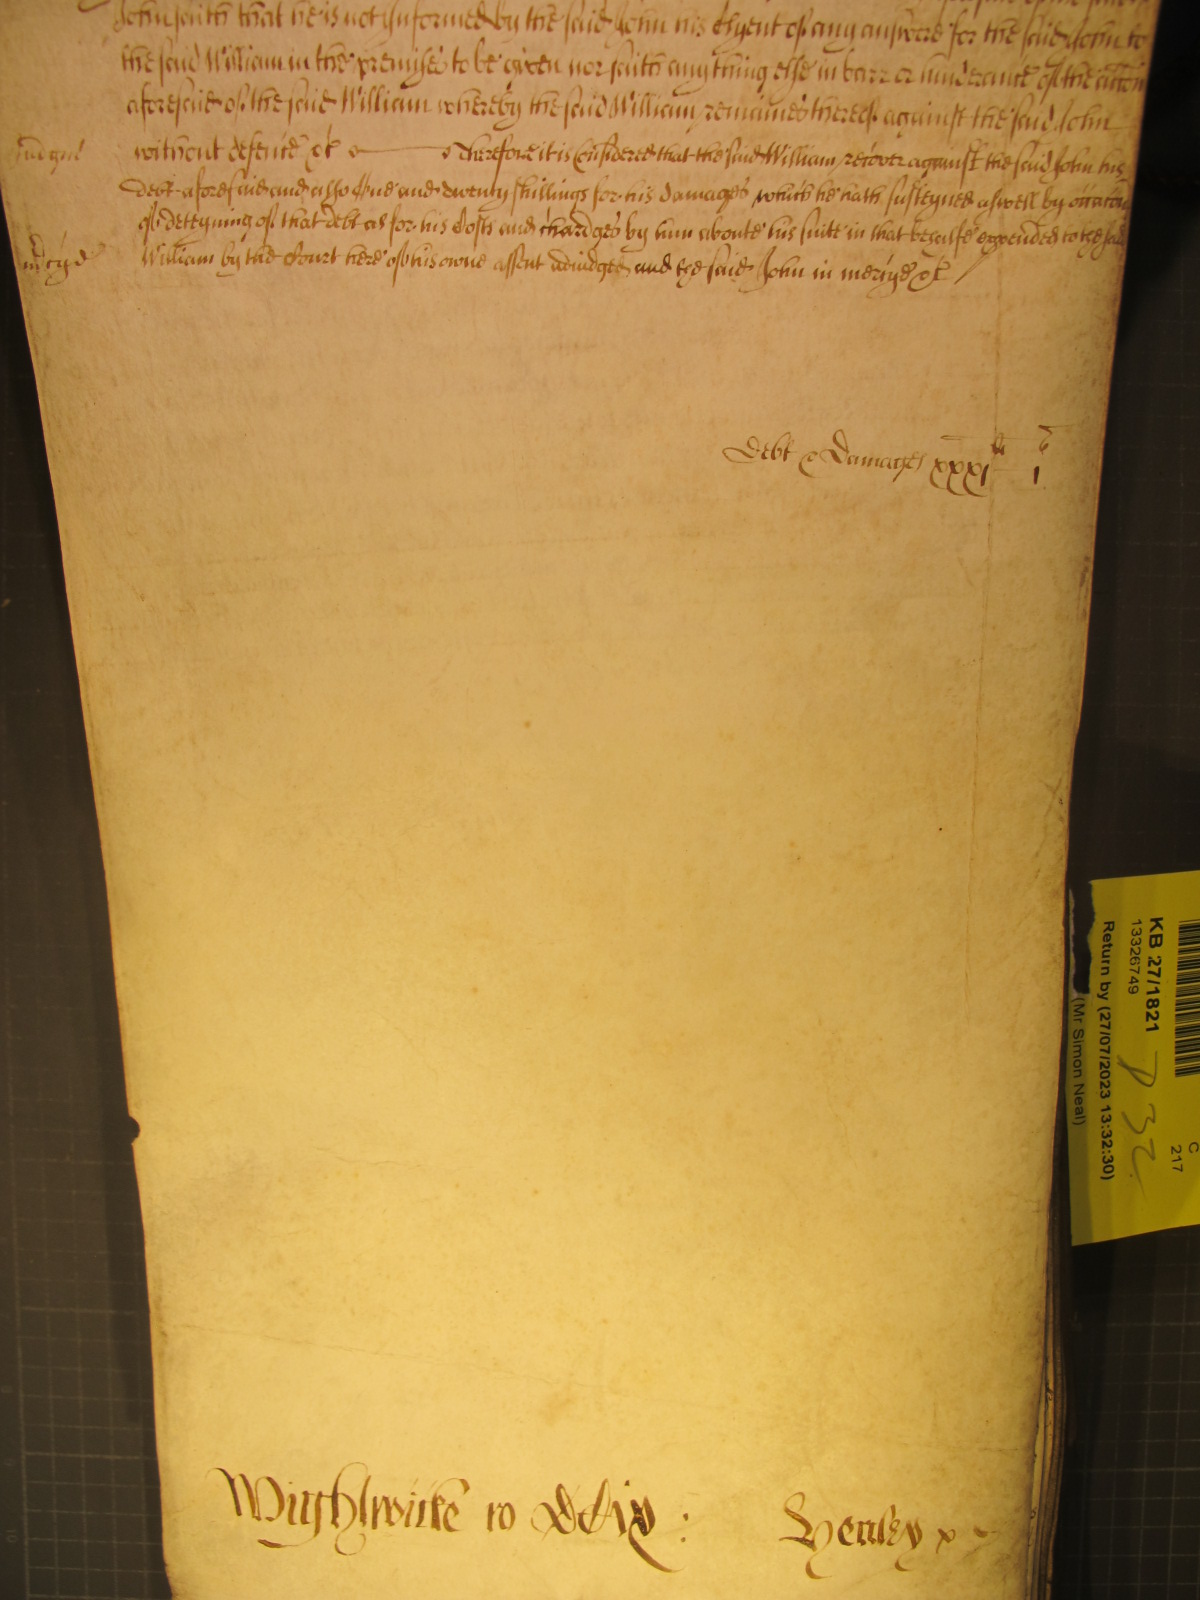 John saith that he is not informed by the said John his Clyent of any answere for the said John to
the said William in the premises to be given nor saith anything else in barr or hinderance of the action
aforesaid of the said William whereby the said William remaines thereof against the said John
Judgmt
without defence &c Therefore it is Considered that the said William recover against the said John his
Debt aforesaid and also One and twenty shillings for his damages which he hath susteyned aswell by occacon
of deteyning of that debt as for his Costs and chardges by him aboute his suite in that behalfe expended to the said
mercye
William by the Court here of his owne assent adiudged and the said John in mercye &c
Debt & Damages xxxi li i s
KB 27/1821
13326749
Return by (27/07/2023 13:32:30)
(Mr Simon Neal)
C
217
P 32
Wightwicke ro
: Henley